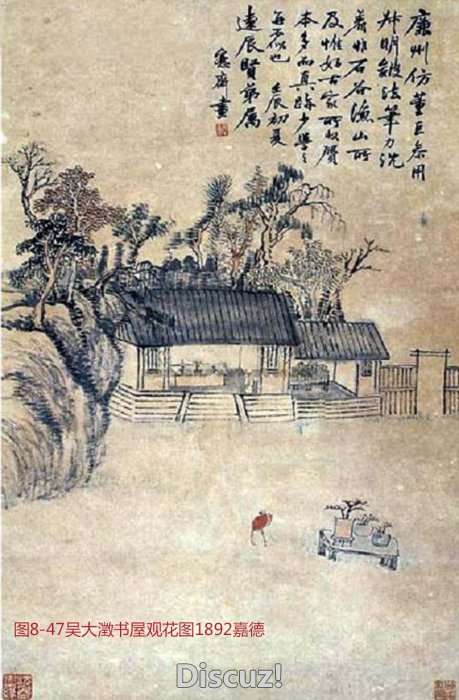 廉州仿董巨參用
叔明皴法筆力沈
着非石谷漁山所
及惟好古家所收贋
本多而真跡少學之
不似也 壬辰初夏
遠辰賢弟屬
愙齋畫
图8-47吴大澂书屋观花图1892嘉德
Discuz!